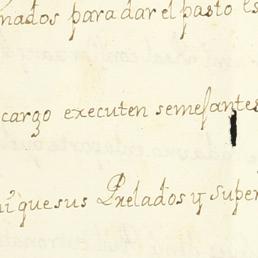 nados para dar el pasto es
cargo executen semejantes
que sus Prelados y super